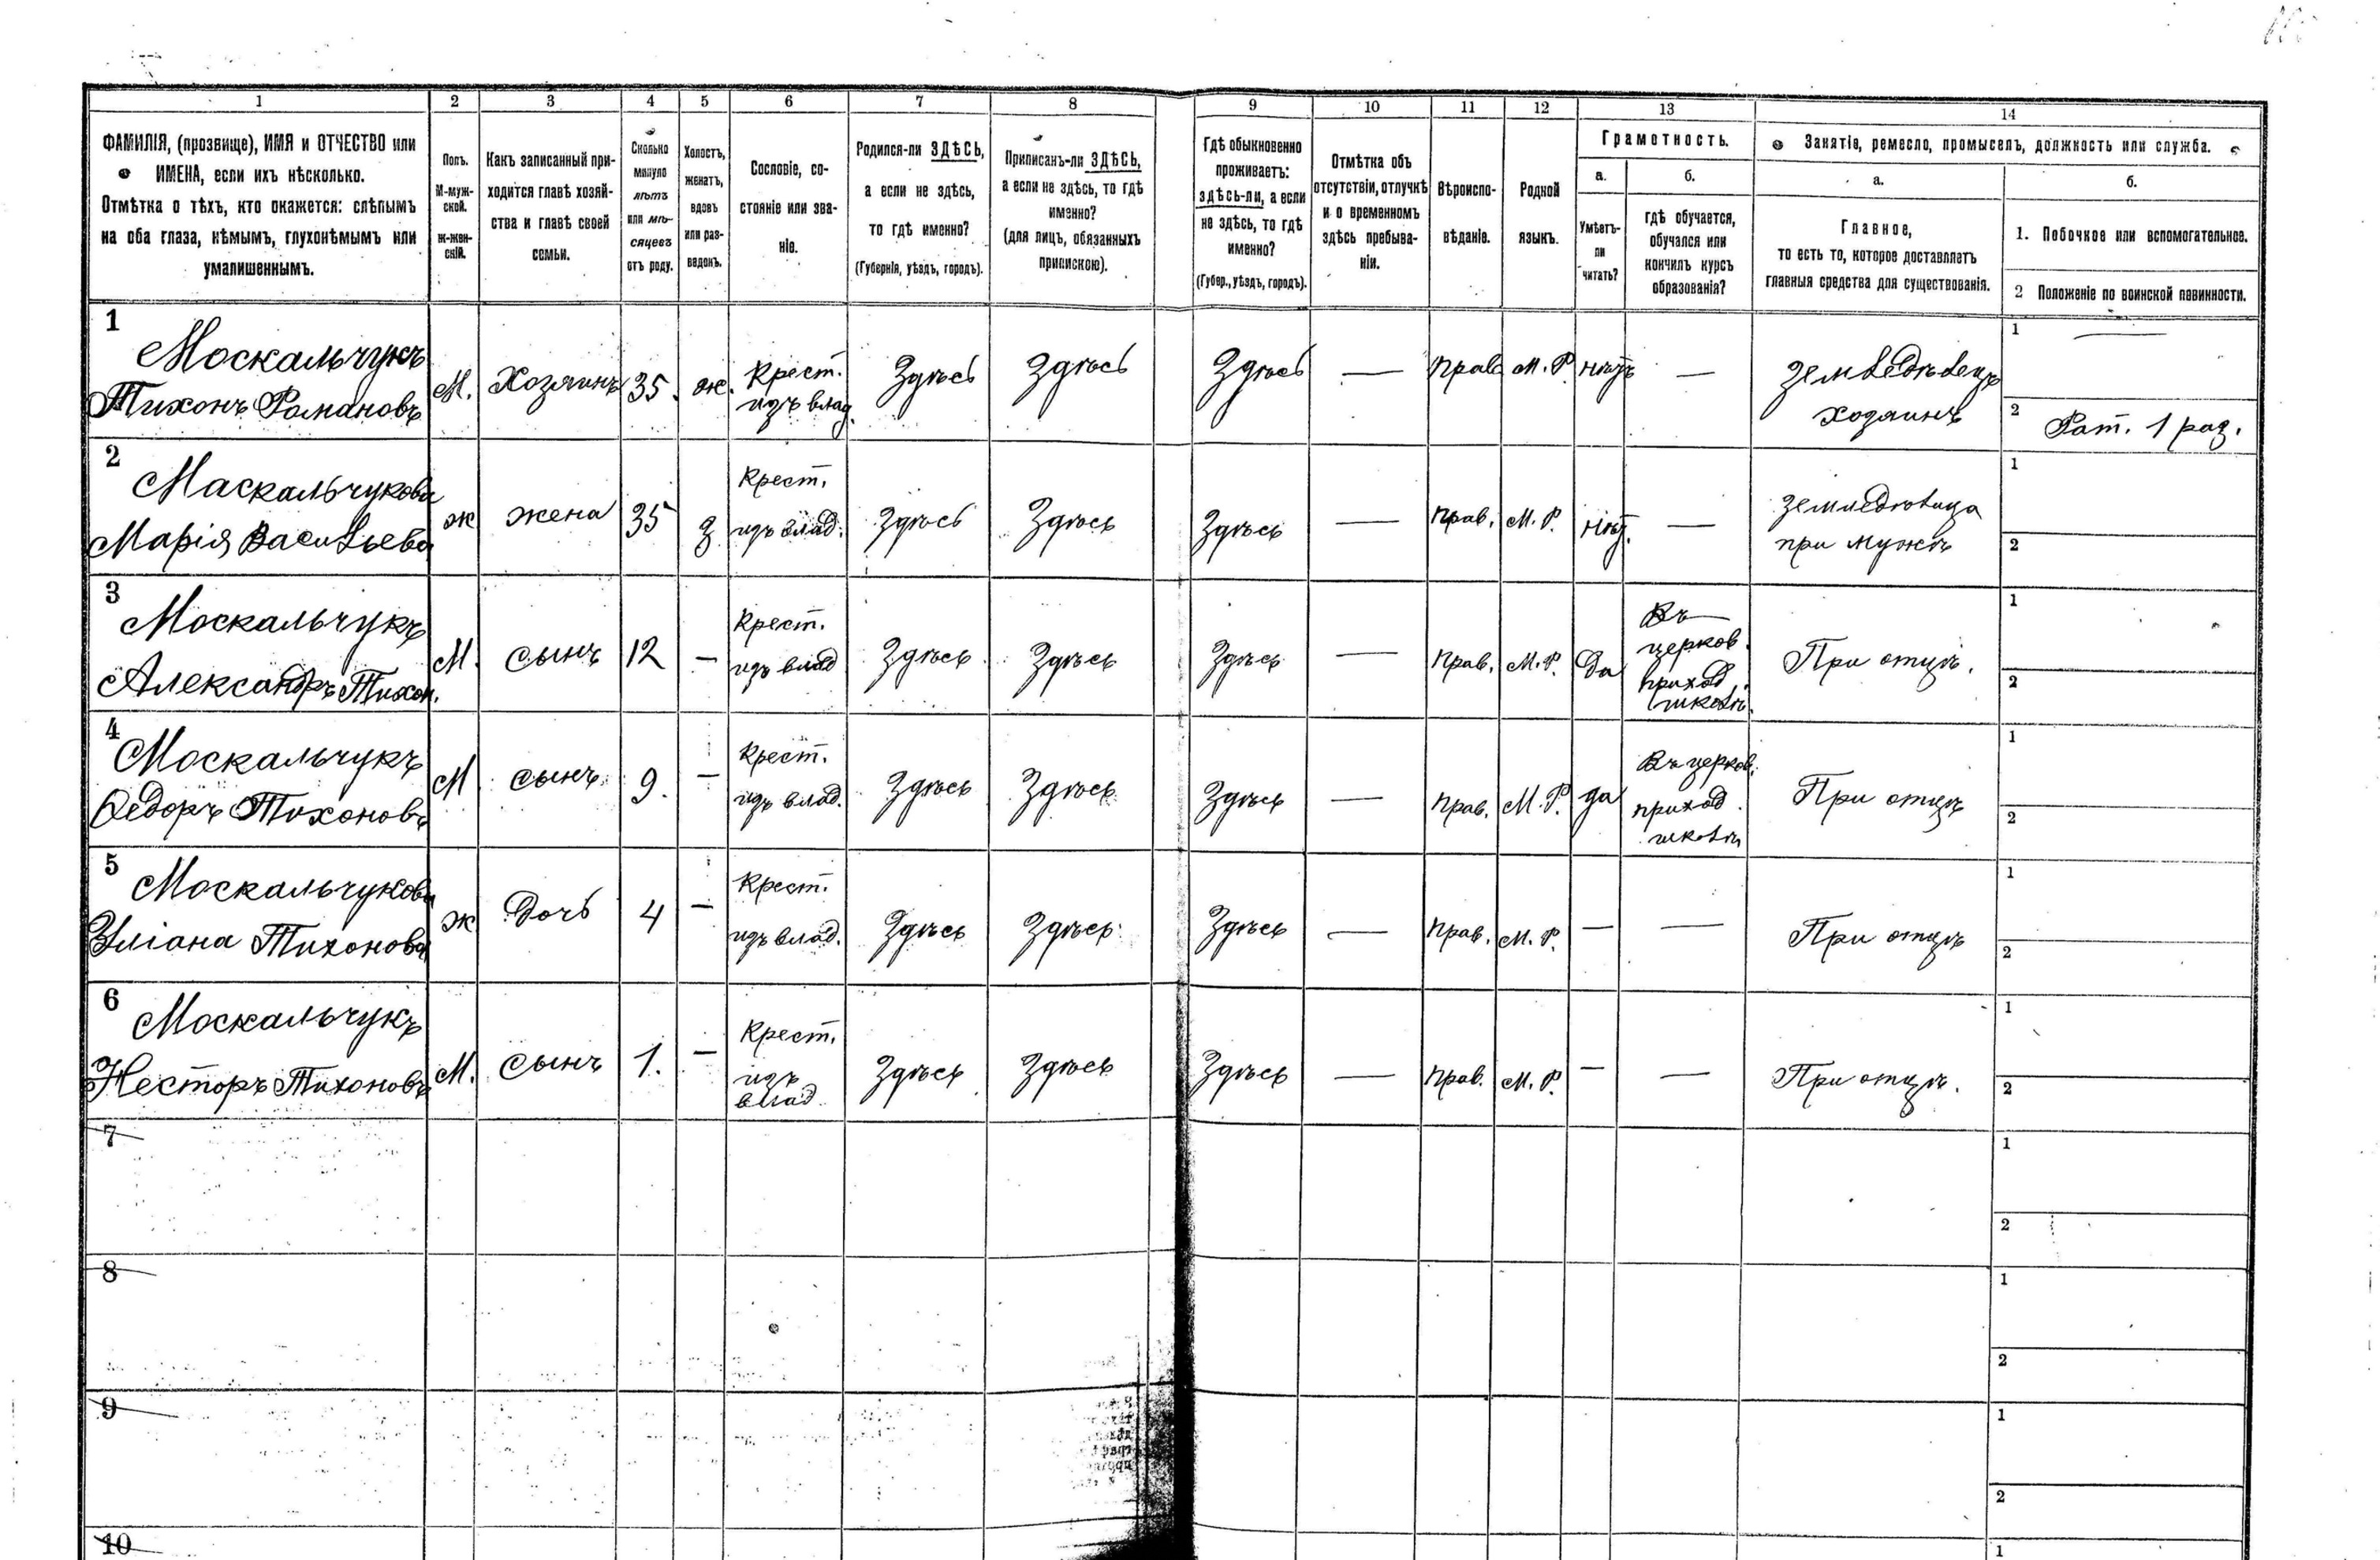 1 2 3 4 5 6 7 8 9 10 11 12 13 14
ФАМИЛІЯ, (прозвище), ИМЯ и ОТЧЕСТВО или
ИМЕНА, если ихъ нѣсколько.
Отмѣтка о тѣхъ, кто окажется: слѣпымъ
на оба глаза, нѣмымъ, глухонѣмымъ или
умалишеннымъ.
Полъ.
М-муж-
ской.
ж-жен-
скій.
Какъ записанный при-
ходится главѣ хозяй-
ства и главѣ своей
семьи.
Сколько
минуло
лѣтъ
или мѣ-
сяцевъ
отъ роду.
Холостъ,
женатъ,
вдовъ
или раз-
веденъ.
Сословіе, со-
стояніе или зва-
ніе.
Родился-ли ЗДѢСЬ,
а если не здѣсь,
то гдѣ именно?
(Губернія, уѣздъ, городъ).
Приписанъ-ли ЗДѢСЬ,
а если не здѣсь, то гдѣ
именно?
(для лицъ, обязанныхъ
припискою).
Гдѣ обыкновенно
проживаетъ:
здѣсь-ли, а если
не здѣсь, то гдѣ
именно?
(Губер., уѣздъ, городъ).
Отмѣтка объ
отсутствіи, отлучкѣ
и о временномъ
здѣсь пребыва-
ніи.
Вѣроиспо-
вѣданіе.
Родной
языкъ.
Грамотность.
а.
Умѣетъ-
ли
читать?
б.
гдѣ обучается,
обучался или
кончилъ курсъ
образованія?
Занятіе, ремесло, промыселъ, должность или служба.
а.
Главное,
то есть то, которое доставляетъ
главныя средства для существованія.
б.
1. Побочное или вспомогательное.
2 Положеніе по воинской повинности.
1
Москальчукъ
Тихонъ Романовъ
М.
Хозяинъ
35.
ж.
Крест.
изъ влад.
Здѣсь
Здѣсь
Здѣсь
—
прав
М. Р.
нѣтъ
—
земледѣлецъ
хозяинъ
1 —
2 Рат. 1 раз.
2
Маскальчукова
Марія Васильева
ж
жена
35
з
Крест.
изъ влад.
Здѣсь
Здѣсь
Здѣсь
—
прав.
М. Р.
нѣт.
—
земледѣлица
при мужѣ
1
2
3
Москальчукъ
Александръ Тихон.
М.
сынъ
12
—
Крест.
изъ влад
Здѣсь
Здѣсь
Здѣсь
—
прав.
М. Р.
да
Въ
церков.
приход.
школѣ.
При отцѣ.
1
2
4
Москальчукъ
Ѳедоръ Тихоновъ
М
сынъ
9.
—
Крест.
изъ влад.
Здѣсь
Здѣсь
Здѣсь
—
прав.
М. Р.
да
Въ церков.
приход.
школѣ
При отцѣ
1
2
5
Москальчукова
Уліана Тихонова
ж
дочь
4
—
Крест.
изъ влад.
Здѣсь
Здѣсь
Здѣсь
—
прав.
М. Р.
—
—
При отцѣ
1
2
6
Москальчукъ
Несторъ Тихоновъ
М.
сынъ
1.
—
Крест.
изъ
влад.
Здѣсь
Здѣсь
Здѣсь
—
прав.
М. Р.
—
—
При отцѣ.
1
2
7
1
2
8
1
2
9
1
2
10
1